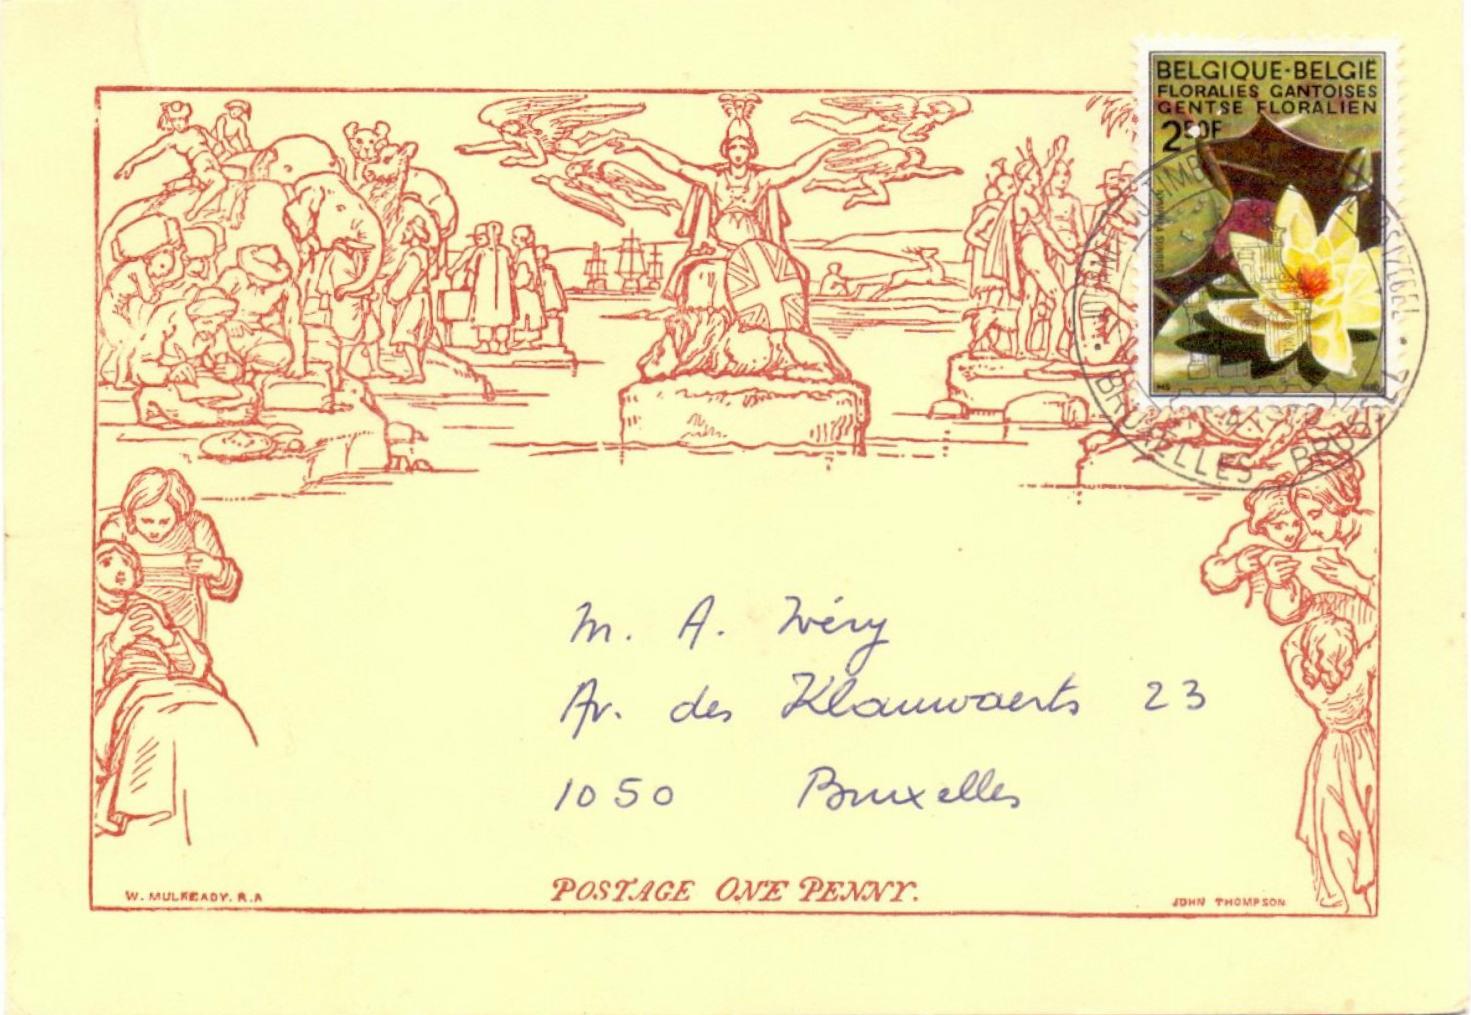 BELGIQUE·BELGIË
FLORALIES GANTOISES
GENTSE FLORALIEN
2 50F
BRUXELLES
M. A. Wéry
Av. des Klauwaerts 23
1050 Bruxelles
POSTAGE ONE PENNY.
W. MULREADY. R.A
JOHN THOMPSON